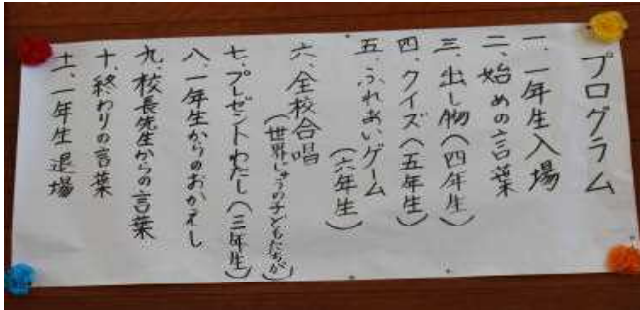 プログラム
一、一年生入場
二、始めの言葉
三、出し物(四年生)
四、クイズ(五年生)
五、ふれあいゲーム
(六年生)
六、全校合唱
(世界じゅうの子どもたちが)
七、プレゼントわたし(三年生)
八、一年生からのおかえし
九、校長先生からの言葉
十、終わりの言葉
十一、一年生退場